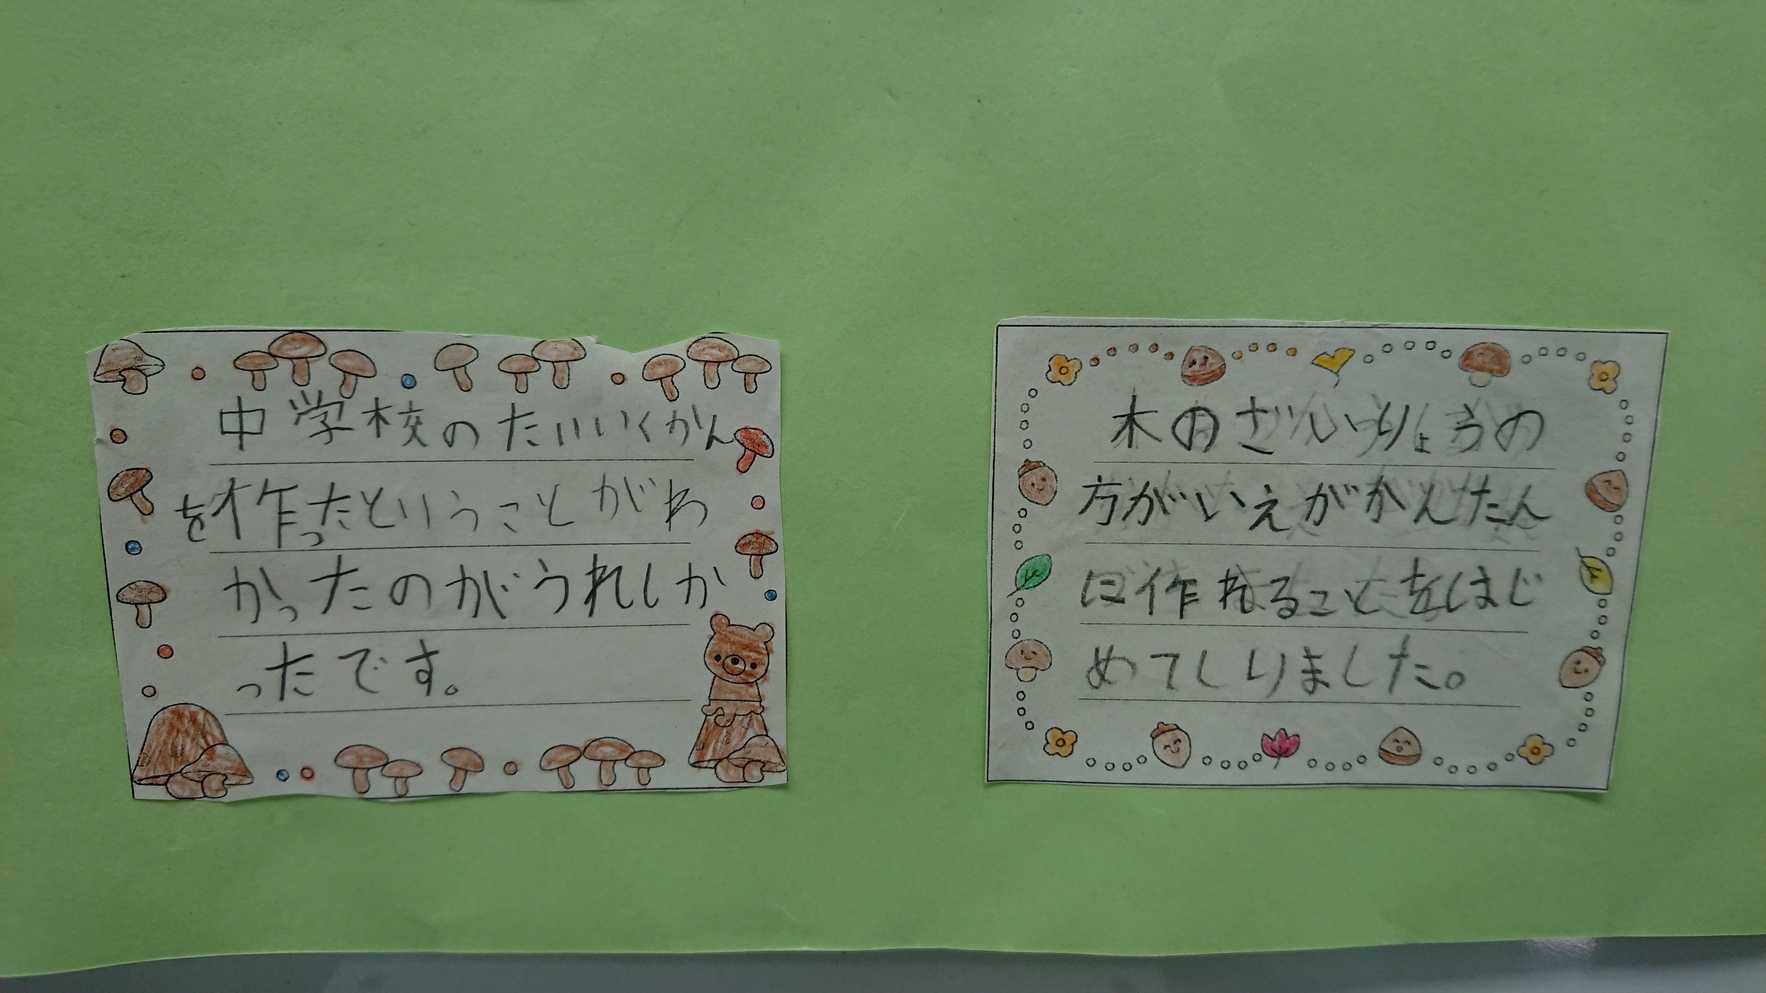 中学校のたいいくかん
を作ったということがわ
かったのがうれしか
ったです。
木のざいりょうの
方がいえがかんたん
に作れることをはじ
めてしりました。